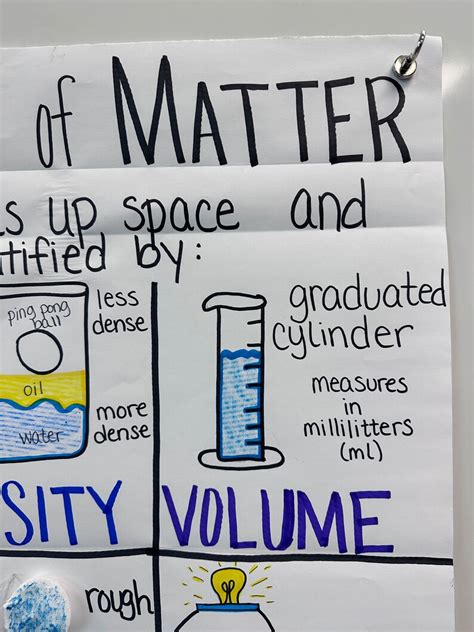 of MATTER
s up space and
tified by:
ping pong
ball
oil
water
less
dense
more
dense
SITY
graduated
cylinder
measures
in
millilitters
(ml)
VOLUME
rough